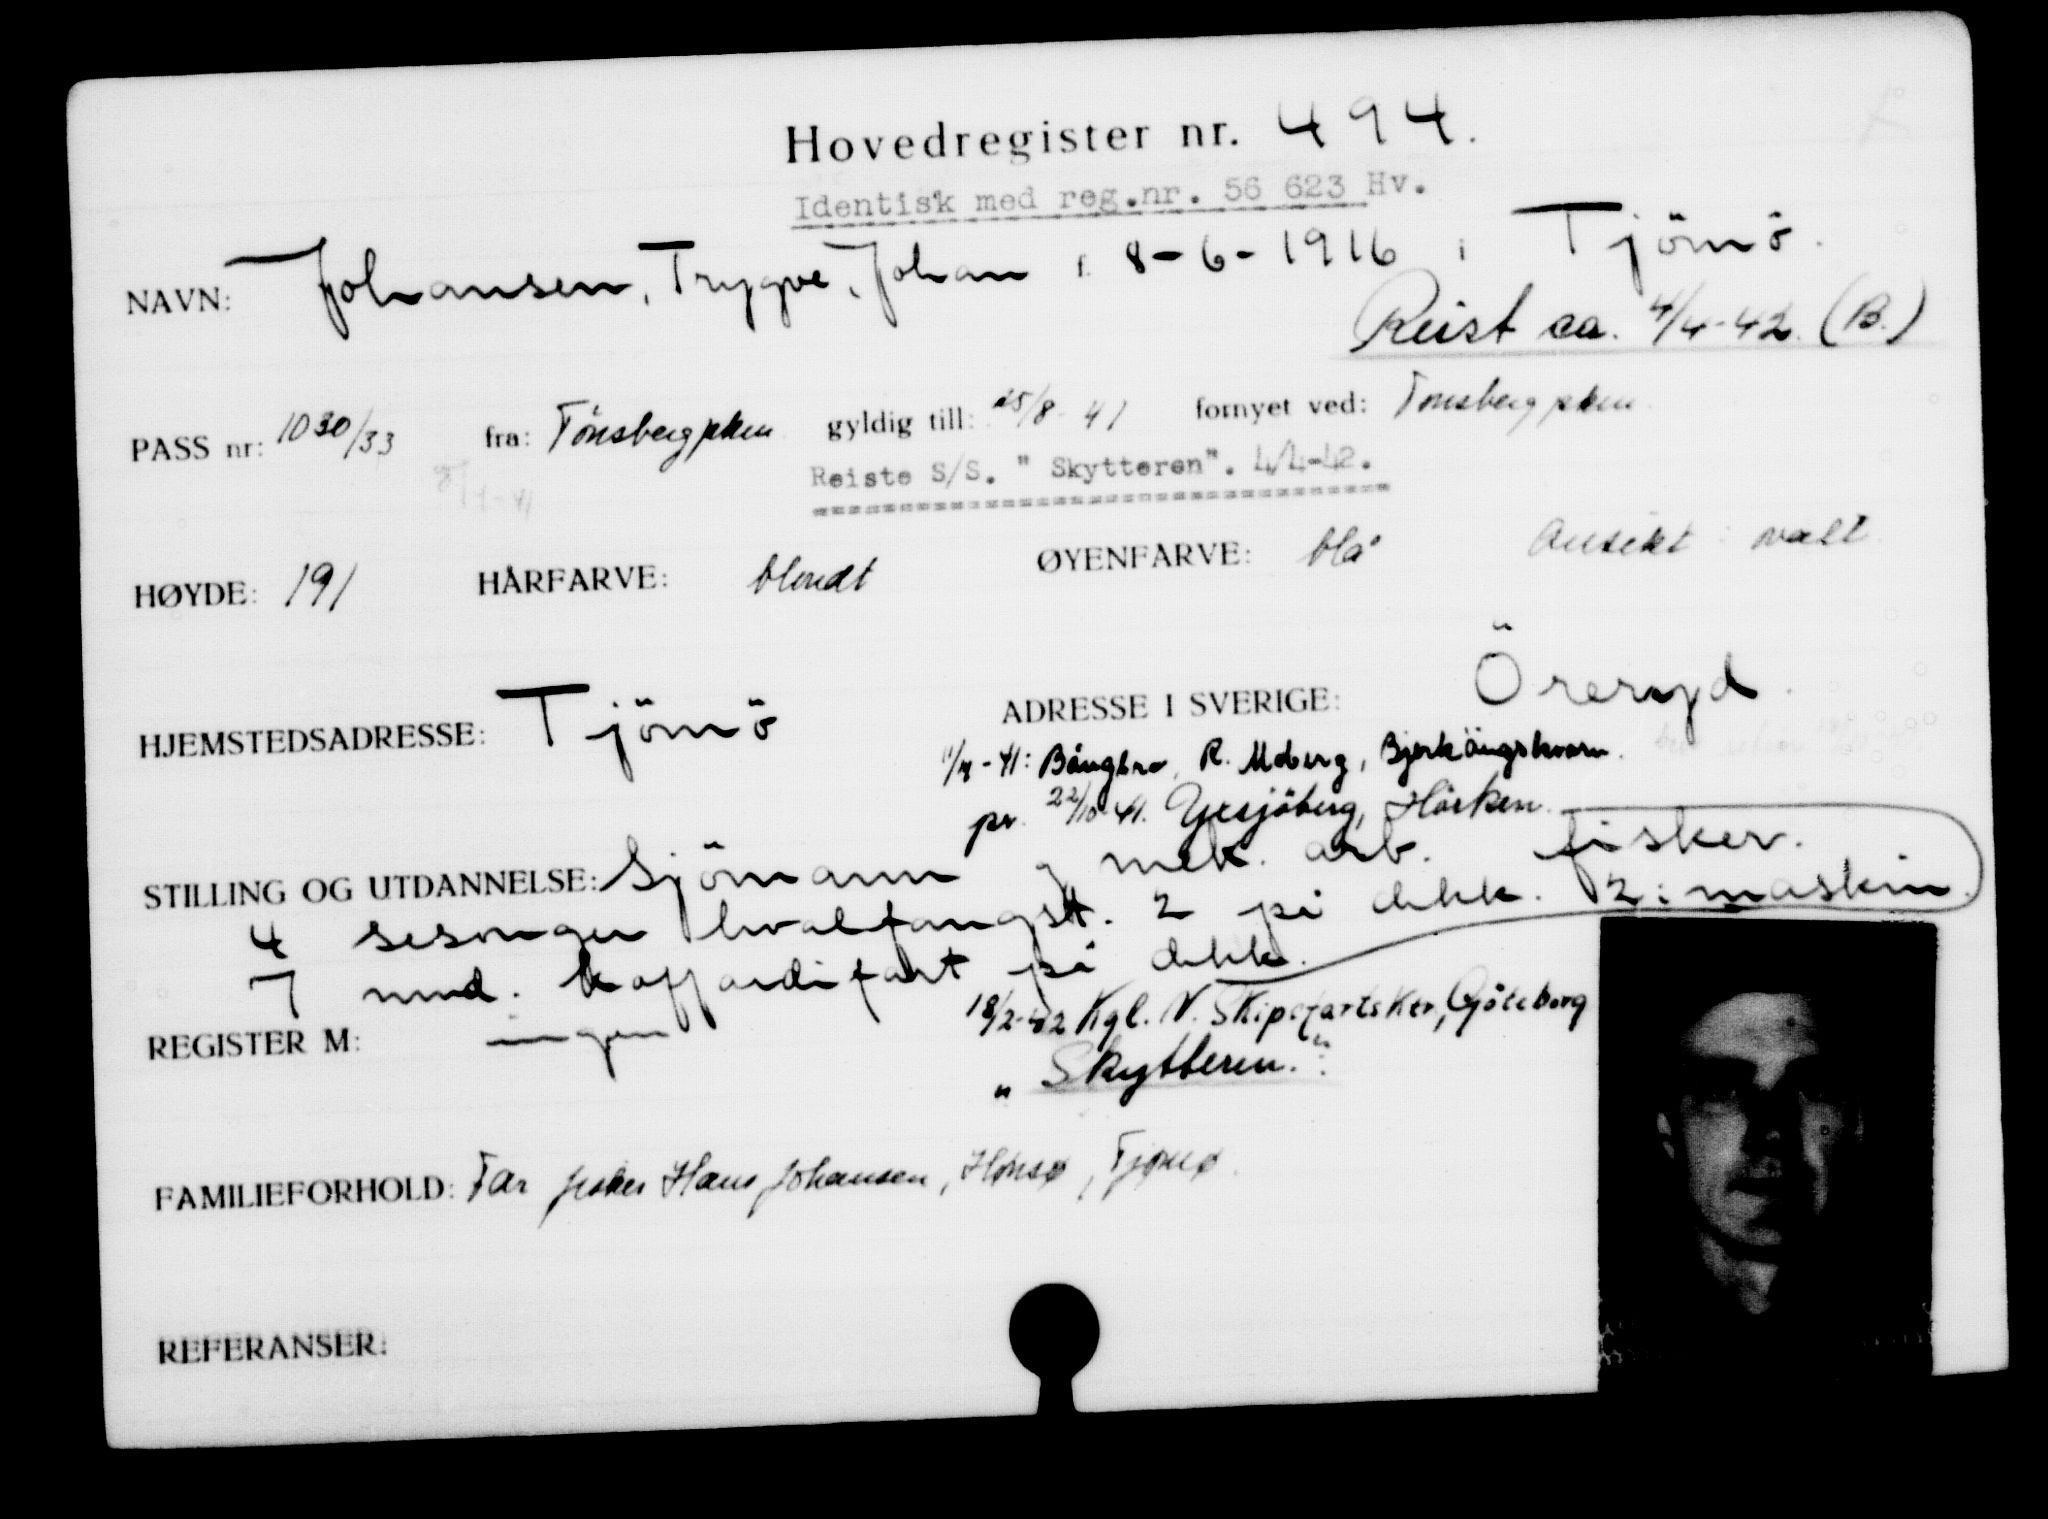 Hovedregister nr. 494.
Identisk med reg.nr. 56 623 Hv.
NAVN: Johansen, Trygve, Johan f. 8-6-1916 i Tjömö.
Reist ca. 4/4-42. (B.)
PASS nr: 1030/33 fra: Tönsberg pkm gyldig till: 25/8-41 fornyet ved: Tönsberg pkm
Reiste S/S. " Skytteren". 4/4-42.
HØYDE: 191 HÅRFARVE: blondt ØYENFARVE: blå Ansikt: ovalt
HJEMSTEDSADRESSE: Tjömö ADRESSE I SVERIGE: Öreryd.
11/4-41: Bångbro, R. Moberg, Bjerkängskvarn.
pr. 22/10-41. Yxsjöberg, Hörken.
STILLING OG UTDANNELSE: Sjömann og mek. arb. fisker.
4 sesonger hvalfangst. 2 på dekk. 2 i maskin.
7 mnd. koffardifart på dekk.
18/2-42 Kgl. N. Skipsfartsktr, Göteborg
REGISTER M: ingen
"Skytteren."
FAMILIEFORHOLD: Far fisker Hans Johansen, Hønsø, Tjømø.
REFERANSER: